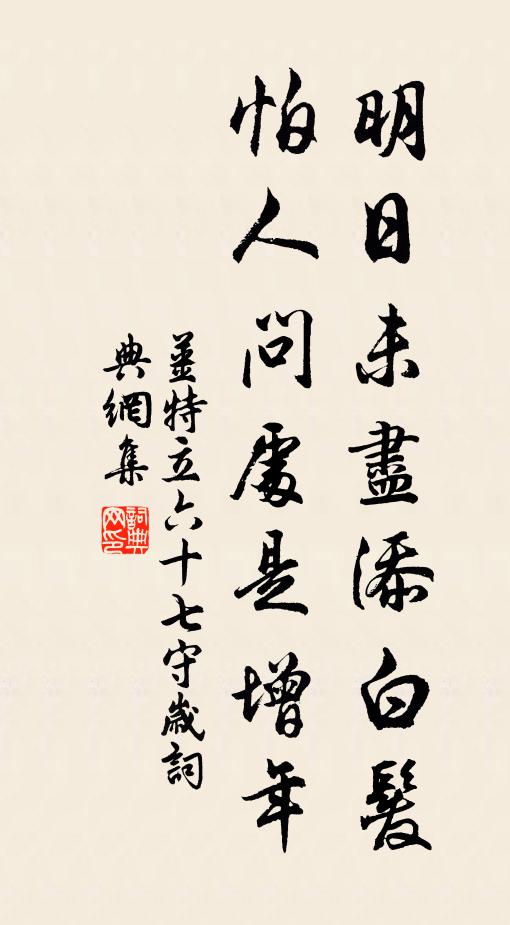 明日未盡添白髮
怕人問處是增年
姜特立六十七守歲詞
典網集
詞典網印